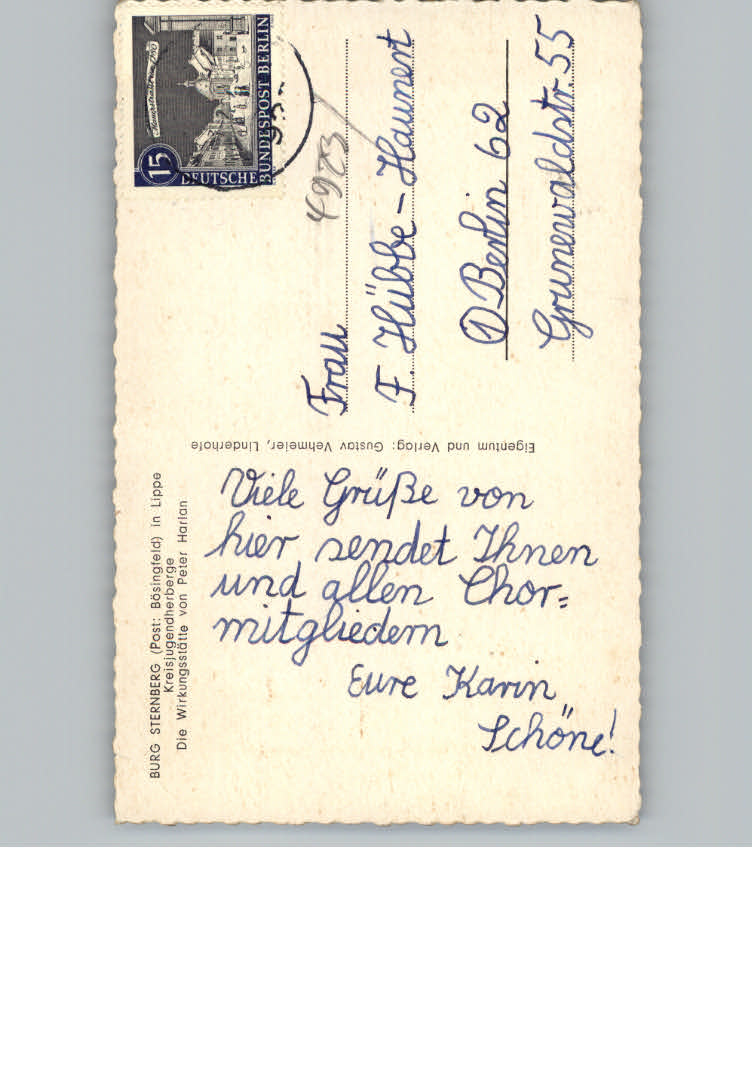 BURG STERNBERG (Post: Bösingfeld) in Lippe
Kreisjugendherberge
Die Wirkungsstätte von Peter Harlan
Viele Grüße von
hier sendet Ihnen
und allen Chor=
mitgliedern
Eure Karin
Schöne!
Eigentum und Verlag: Gustav Vehmeier, Linderhofe
15
DEUTSCHE
BUNDESPOST BERLIN
4923
Frau
F. Hübbe - Haunert
1 Berlin 62
Grunewaldstr. 55